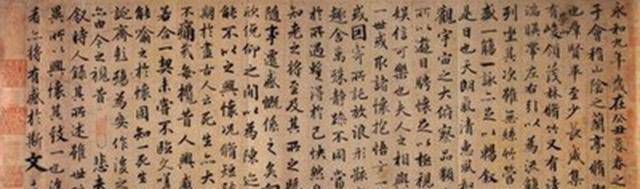 永和九年歲在癸丑暮春之
于會稽山陰之蘭亭脩
也羣賢畢至少長咸集
有崇山峻領茂林脩竹又有清
湍暎帶左右引以為流
列坐其次雖無絲竹管
盛一觴一詠亦足以暢敘
是日也天朗氣清惠風和
觀宇宙之大俯察品類
所以遊目騁懷足以極視
娛信可樂也夫人之相與
一世或取諸懷抱悟言一
或因寄所託放浪形骸
趣舍萬殊靜躁不同當
於所遇暫得於己怏然
知老之將至及其所之
隨事遷感慨係之矣向
欣俛仰之間以為陳迹
能不以之興懷況脩短隨
期於盡古人云死生亦大
不痛哉每攬昔人興感
若合一契未嘗不臨文嗟
能喻之於懷固知一死生
誕齊彭殤為妄作後之
亦由今之視昔 悲夫
敘時人錄其所述雖世
異所以興懷其致一也後
者亦將有感於斯文